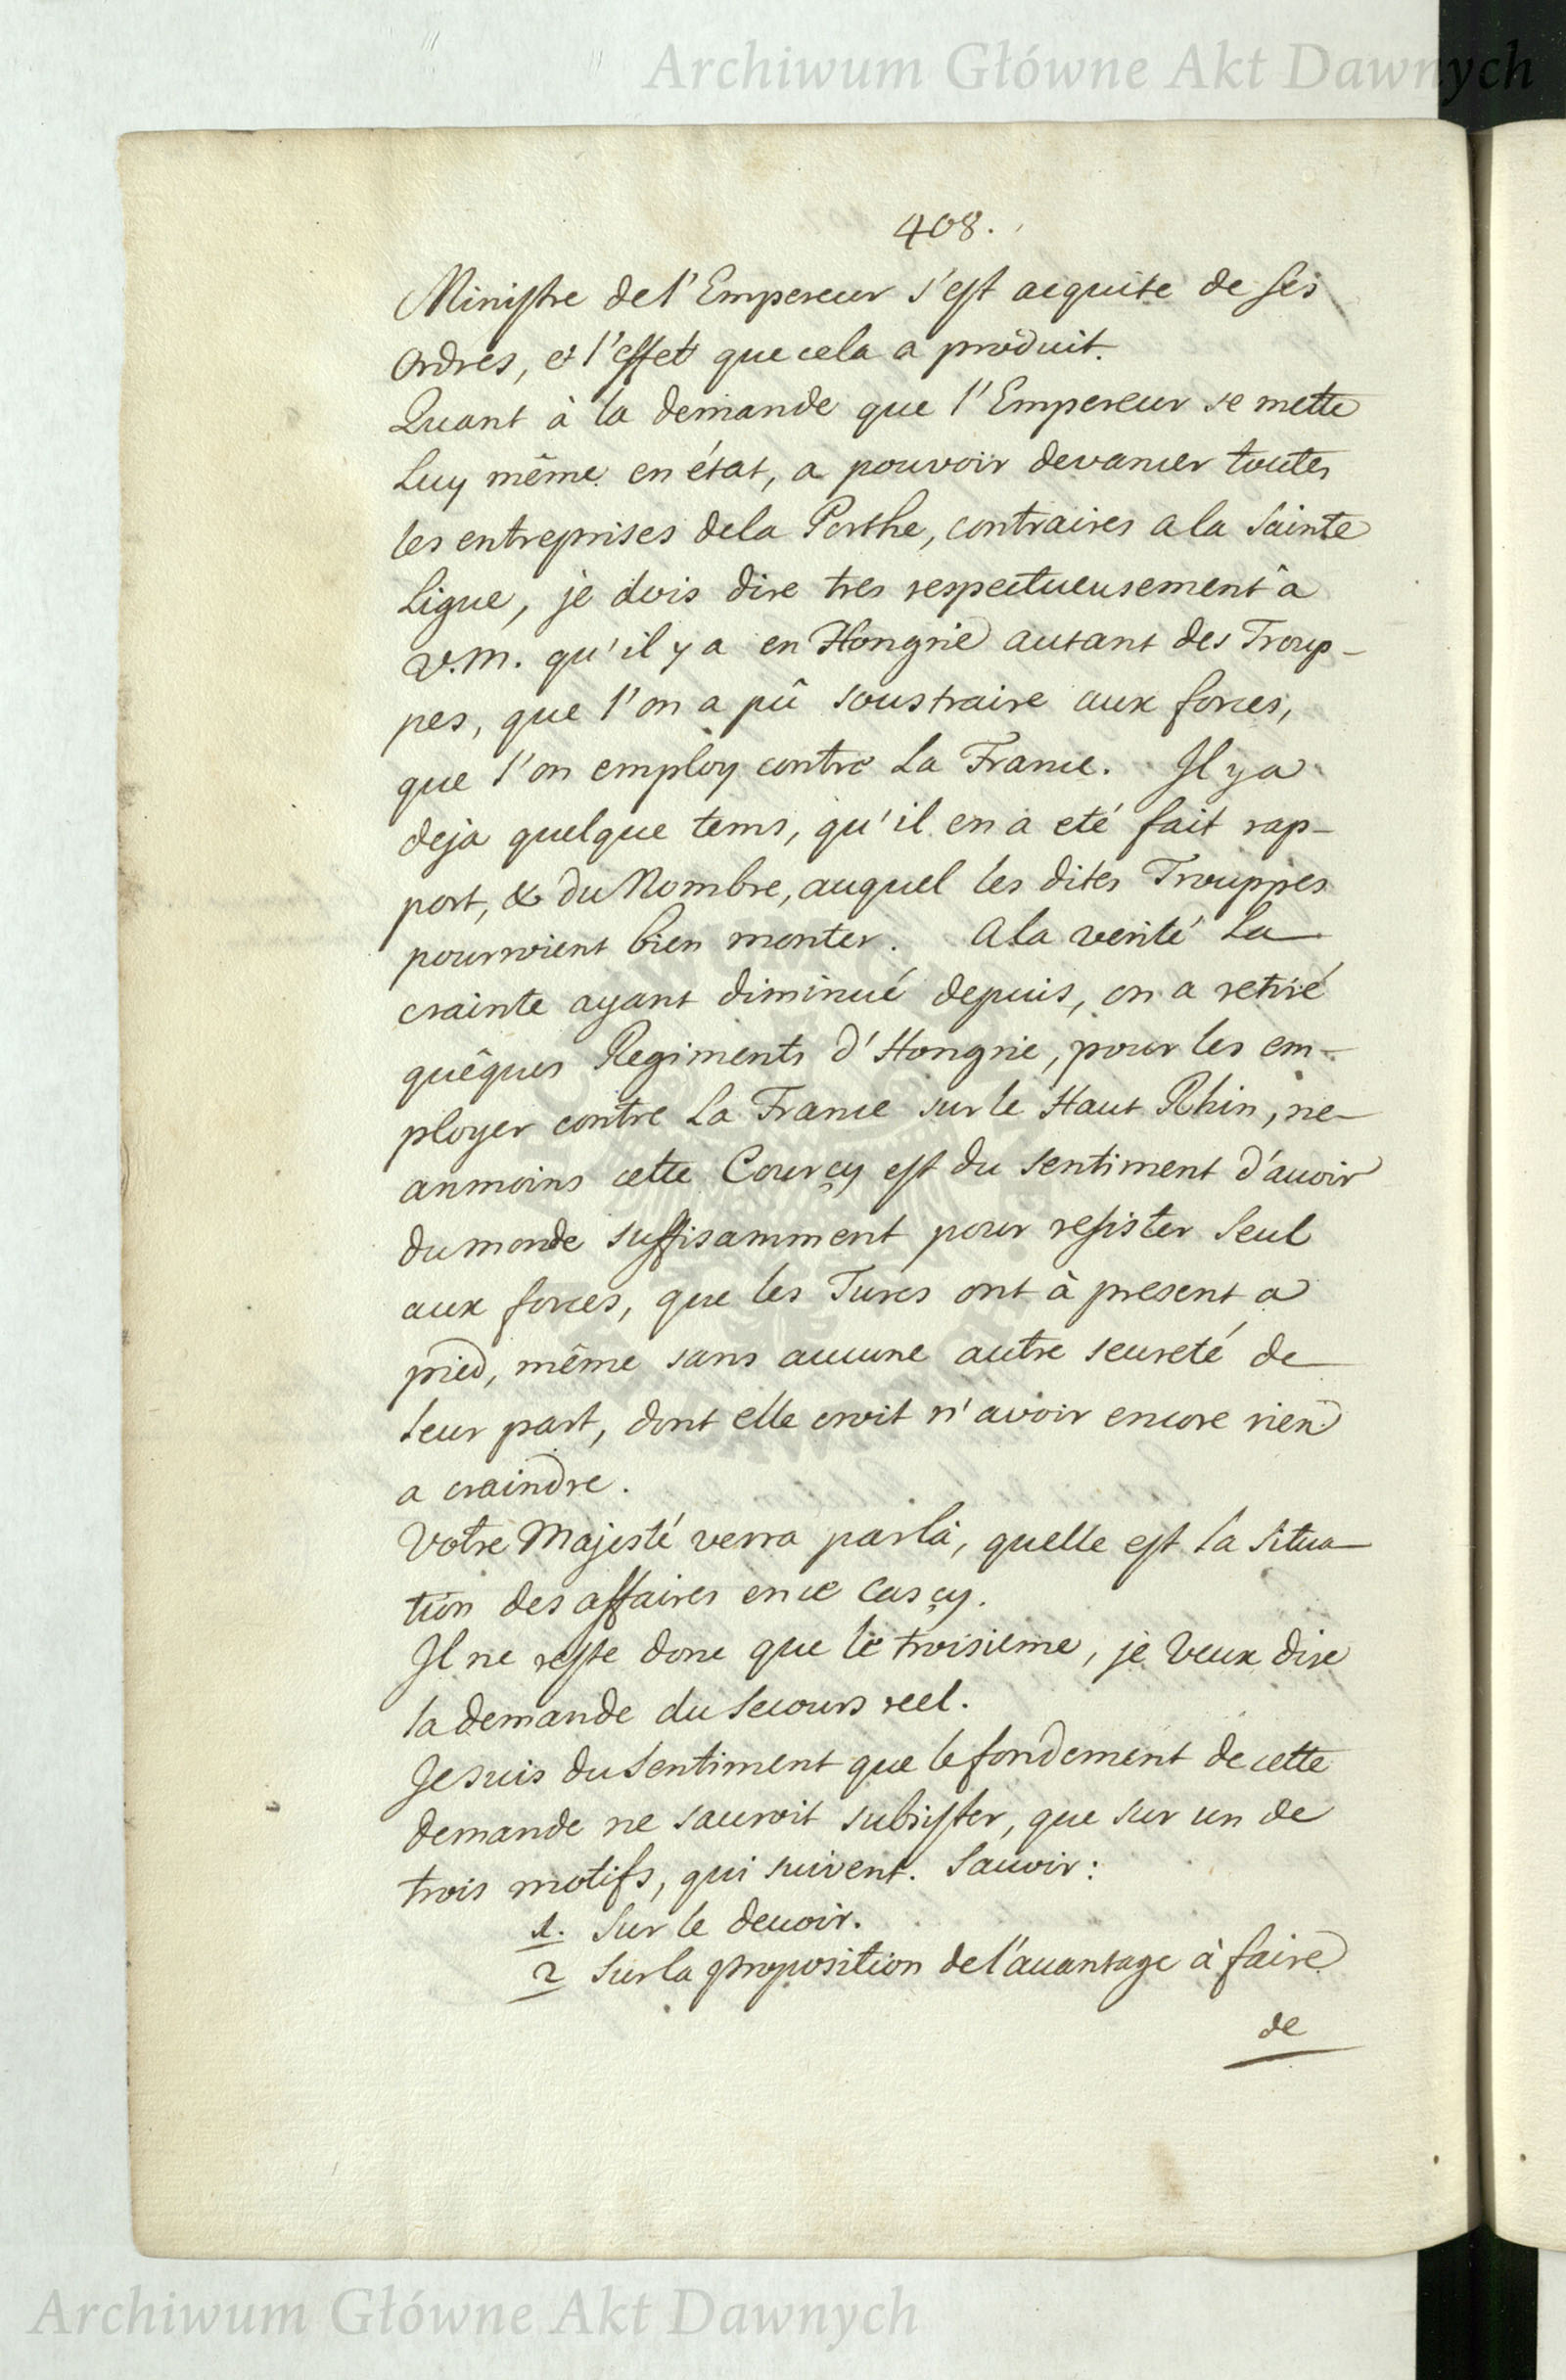 Archiwum Główne Akt Dawnych
408.
Ministre de l'Empereur s'est acquite de ses
ordres, et l'effet que cela a produit.
Quant à la demande que l'Empereur se mette
Luy même en état, a pouvoir devancer toutes
les entreprises dela Porthe, contraires a la Sainte
Ligue, je dois dire tres respectueusement à
V.M. qu'il y a en Hongrie autant des Troup-
pes, que l'on a pû soustraire aux forces,
que l'on employ contre La France. Il y a
deja quelque tems, qu'il en a eté fait rap-
port, & du Nombre, auquel les dites Trouppes
pourroient bien monter. A la verité La
crainte ayant diminué depuis, on a retiré
quêques Regiments d'Hongrie, pour les em-
ployer contre La France sur le Haut Rhin, ne-
anmoins cette Cour çy est du Sentiment d'auoir
du monde suffisamment pour resister Seul
aux forces, que les Turcs ont à present a
pied, même sans aucune autre seureté de
leur part, dont elle croit n'avoir encore rien
a craindre.
Votre Majesté verra parlà, quelle est la Situa-
tion des affaires en ce Cas çy.
Il ne reste donc que le troisieme, je Veux dire
la demande du Secours reel.
Je suis du Sentiment que le fondement de cette
demande ne sauroit subsister, que sur un de
trois motifs, qui suivent. Sauoir:
1. Sur le deuoir.
2 Sur la proposition de l'auantage à faire
de
Archiwum Główne Akt Dawnych